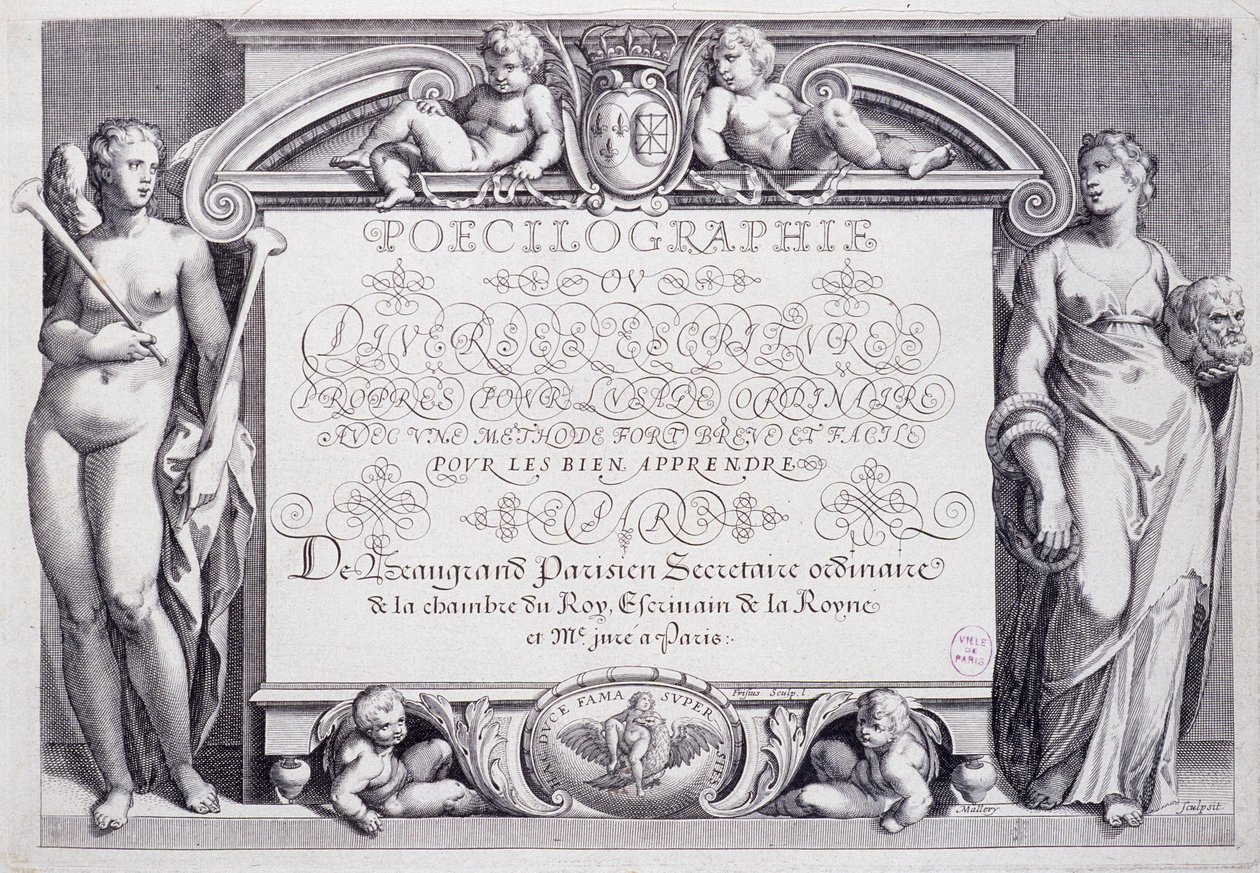 POECILOGRAPHIE
OV
DIVERSES ESCRITVRES
PROPRES POVR L'VSAGE ORDINAIRE
AVEC VNE METHODE FORT BREVE ET FACILE
POVR LES BIEN APPRENDRE
PAR
De Beaugrand Parisien Secretaire ordinaire
de la chambre du Roy, Escrivain de la Royne
et Me. juré a Paris:.
VILLE
DE
PARIS
Frisius Sculp. l
HAC DVCE FAMA SVPERSTES
Mallery sculpsit.